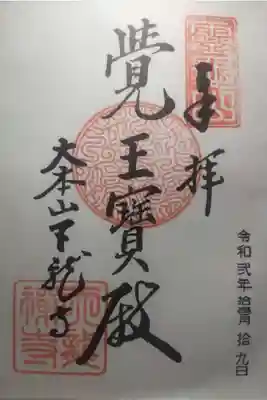 奉拝
覺王寶殿
大本山天龍寺
令和弐年拾壹月拾九日